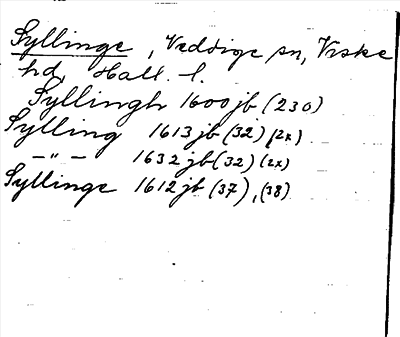 Syllinge, Veddige sn, Viske
hd, Hall. l.
Syllingh 1600 jb (230)
Sylling 1613 jb (32) (2x)
—"— 1632 jb (32) (2x)
Syllinge 1612 jb (37), (38)